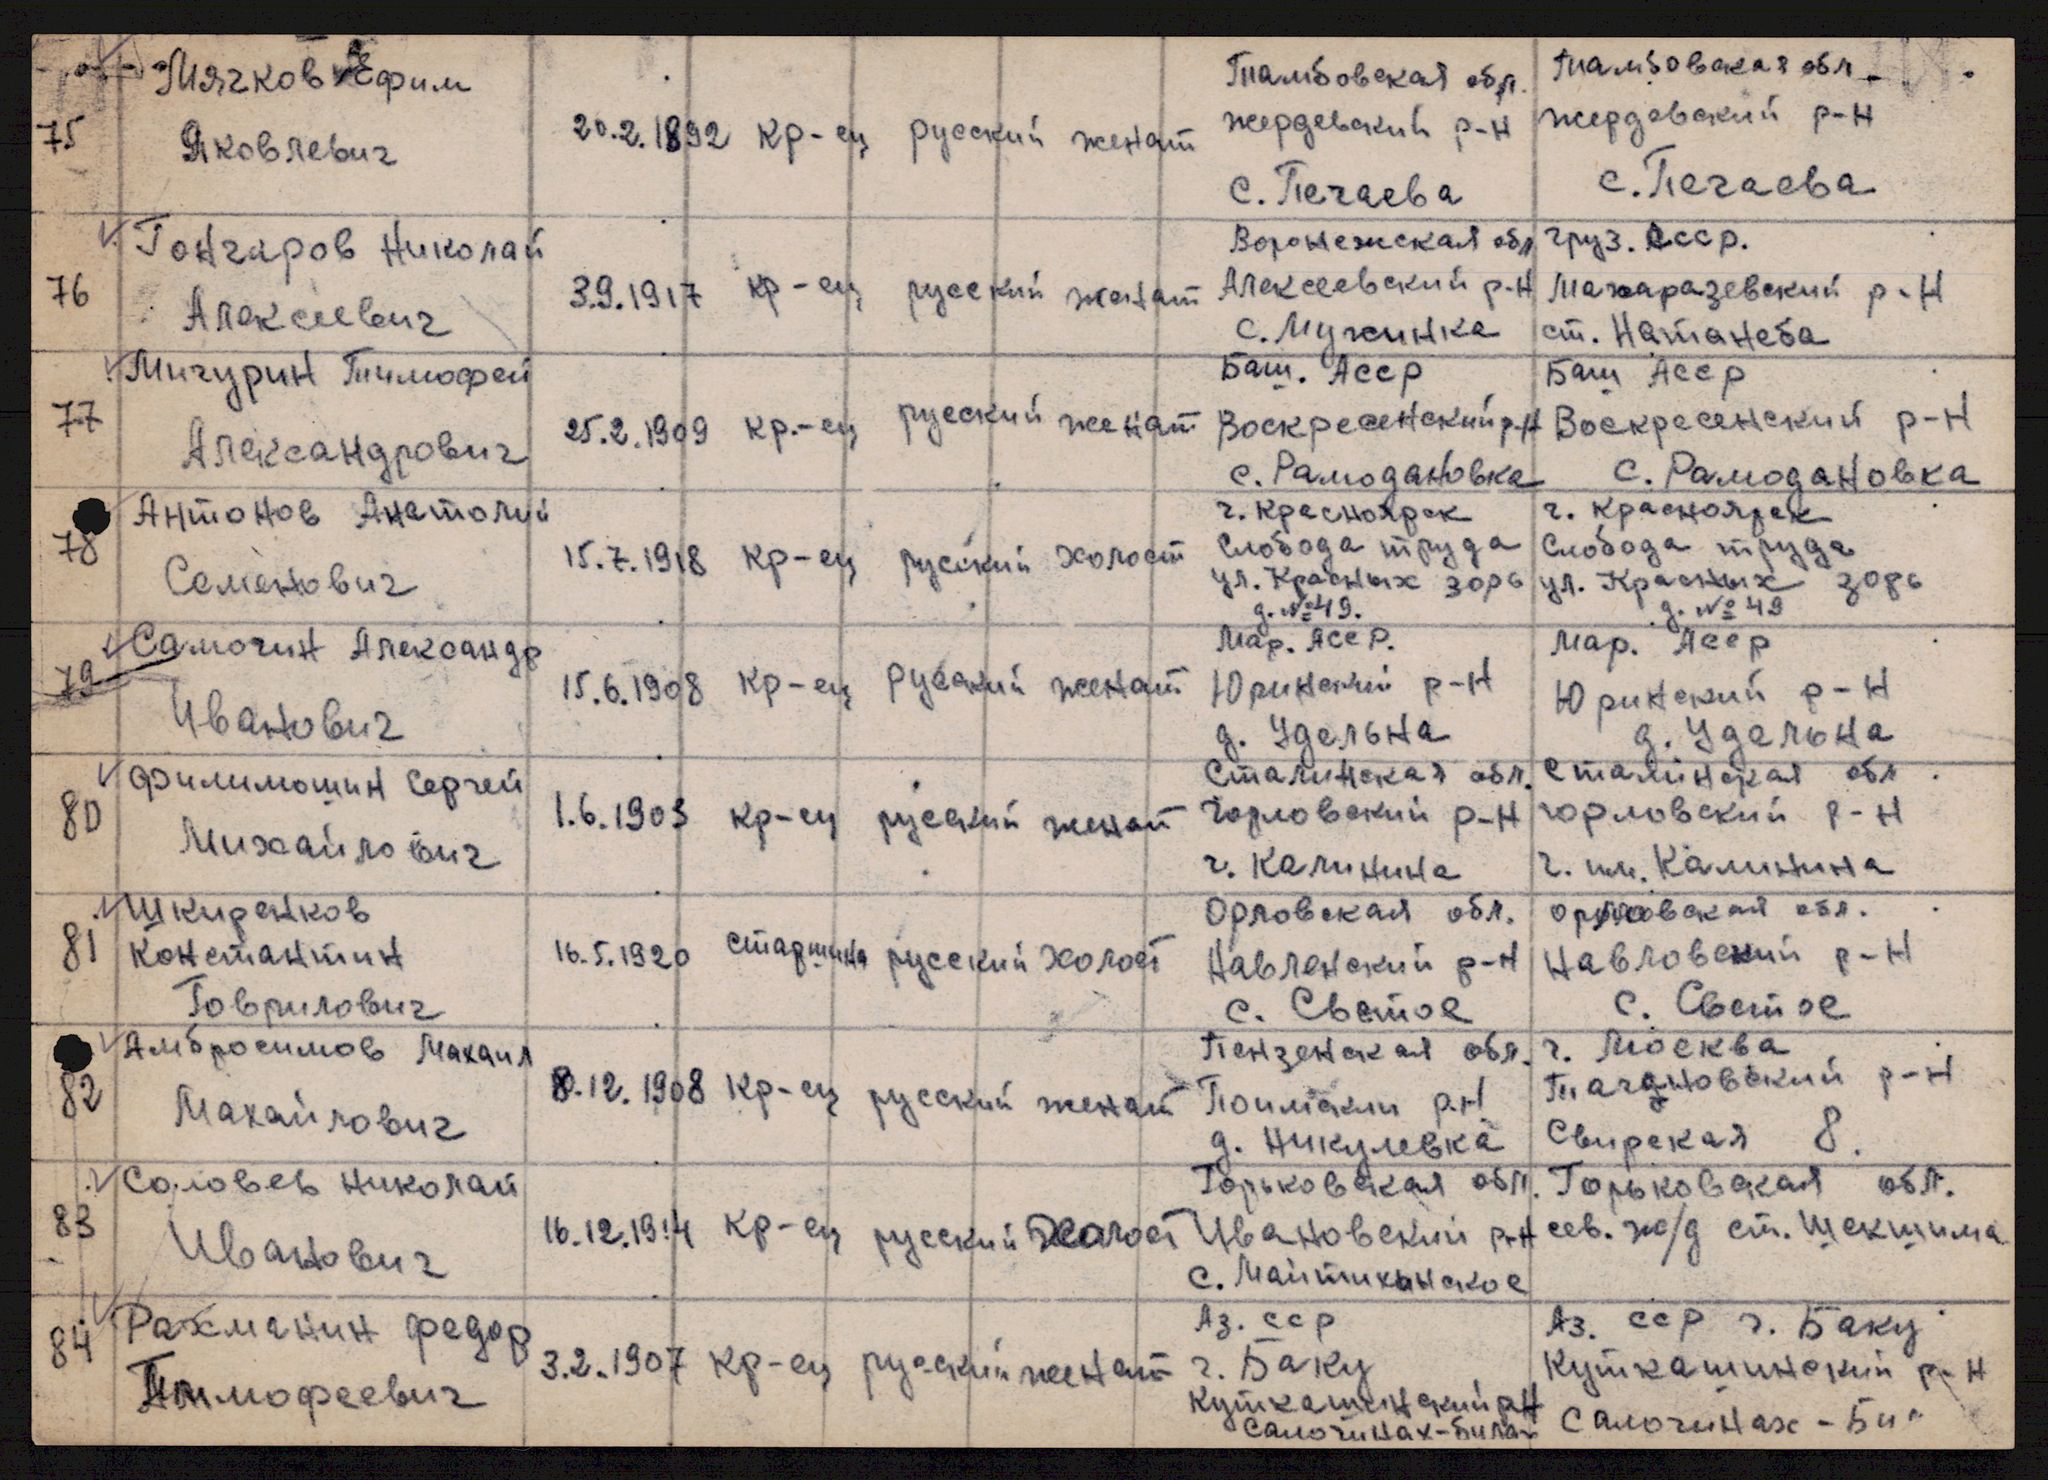 75 Мячков Ефим Яковлевич 20.2.1892 кр-ец русский женат Тамбовская обл. жердевский р-н с. Печаева Тамбовская обл. жердевский р-н с. Печаева
76 Гончаров Николай Алексеевич 3.9.1917 кр-ец русский женат Воронежская обл Алексеевский р-н с. Мужинка Груз. ССР. Махаразевский р-н ст. Натанеба
77 Мичурин Тимофей Александрович 25.2.1909 кр.-ец русский женат Баш. АССР Воскресенский р-н с. Рамодановка Баш АССР Воскресенский р-н с. Рамодановка
78 Антонов Анатолий Семенович 15.7.1918 кр-ец русский холост г. Красноярск Слобода труда ул. Красных зорь д. № 49. г. Красноярск Слобода труда ул. Красных зорь д. № 49
79 Самочин Александр Иванович 15.6.1908 кр-ец русский женат Мар. АССР. Юринский р-н д. Удельна Мар. АССР Юринский р-н д. Удельна
80 Филимошин Сергей Михайлович 1.6.1903 кр-ец русский женат Сталинская обл. Горловский р-н г. Калинина Сталинская обл горловский р-н г. им. Калинина
81 Шкиренков Константин Гаврилович 16.5.1920 старшина русский холост Орловская обл. Навленский р-н с. Светое орловская обл. Навловский р-н с. Светое
82 Амбросимов Махаил Махайлович 8.12.1908 кр-ец русский женат Пензенская обл. Поимскии р.н д. Никулевка г. Москва Тагановский р-н Свирская 8.
83 Соловьев Николай Иванович 16.12.1914 кр-ец русский холост Горьковская обл. Ивановский р-н с. Майтихинское Горьковская обл. сев. ж/д ст. Шекшима
84 Рахманин Федор Тимофеевич 3.2.1907 кр-ец русский женат Аз. ССР г. Баку Куткашинский р-н Самочинах-Билая Аз. ССР г. Баку Куткашинский р-н Самочинах-Би